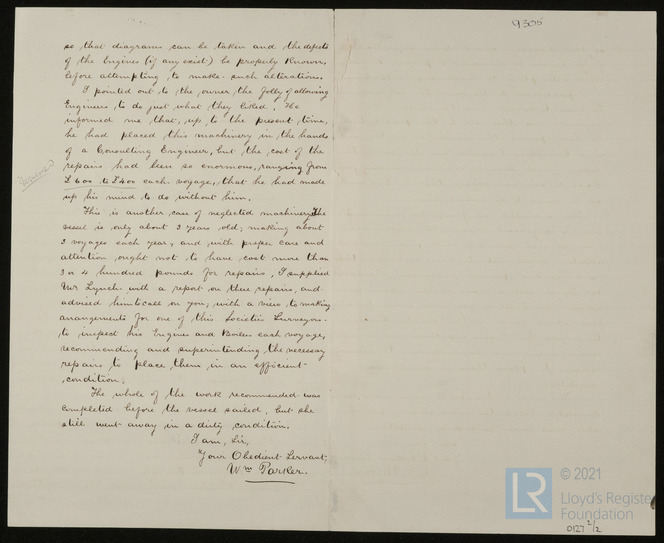 19305
so that diagrams can be taken and the defects
of the Engines (if any exist) be properly known,
before attempting to make such alterations.
I pointed out to the owner the folly of allowing
Engineers to do just what they liked. He
informed me that, up to the present time,
he had placed this machinery in the hands
of a Consulting Engineer, but the cost of the
repairs had been so enormous, ranging from
£400 each voyage, that he had made
up his mind to do without him.
This is another case of neglected machinery. The
vessel is only about 3 years old; making about
3 voyages each year, and with proper care and
attention ought not to have cost more than
3 or 4 hundred pounds for repairs. I supplied
Mr Lynch with a report on these repairs, and
advised him to call on you, with a view to making
arrangements for one of this Societies Surveyors
to inspect his Engines and Boilers each voyage,
recommending and superintending the necessary
repairs to place them in an efficient
condition.
The whole of the work recommended was
completed before the vessel sailed, but she
still went away in a dirty condition.
I am, Sir,
Your Obedient Servant,
Wm Parker.
LR © 2021
Lloyd's Register
Foundation
0127 2/2